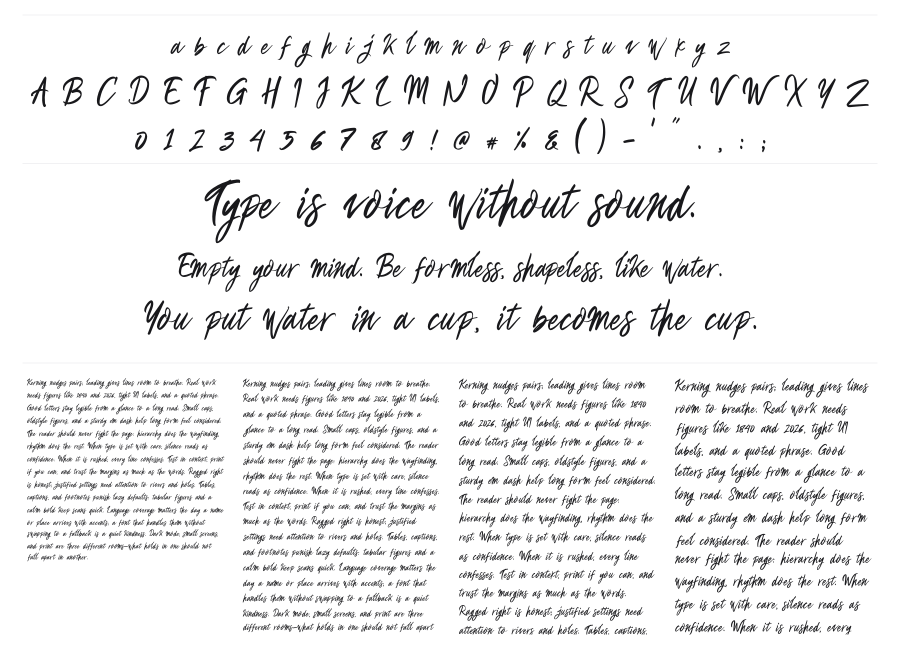 a b c d e f g h i j k l m n o p q r s t u v w x y z
A B C D E F G H I J K L M N O P Q R S T U V W X Y Z
0 1 2 3 4 5 6 7 8 9 ! @ # % & ( ) - ' " . , : ;
Type is voice without sound.
Empty your mind. Be formless, shapeless, like water.
You put water in a cup, it becomes the cup.
Kerning nudges pairs; leading gives lines room to breathe. Real work
needs figures like 1890 and 2026, tight UI labels, and a quoted phrase.
Good letters stay legible from a glance to a long read. Small caps,
oldstyle figures, and a sturdy em dash help long form feel considered.
The reader should never fight the page: hierarchy does the wayfinding,
rhythm does the rest. When type is set with care, silence reads as
confidence. When it is rushed, every line confesses. Test in context, print
if you can, and trust the margins as much as the words. Ragged right
is honest; justified settings need attention to rivers and holes. Tables,
captions, and footnotes punish lazy defaults: tabular figures and a
calm bold keep scans quick. Language coverage matters the day a name
or place arrives with accents; a font that handles them without
swapping to a fallback is a quiet kindness. Dark mode, small screens,
and print are three different rooms—what holds in one should not
fall apart in another.
Kerning nudges pairs; leading gives lines room to breathe.
Real work needs figures like 1890 and 2026, tight UI labels,
and a quoted phrase. Good letters stay legible from a
glance to a long read. Small caps, oldstyle figures, and a
sturdy em dash help long form feel considered. The reader
should never fight the page: hierarchy does the wayfinding,
rhythm does the rest. When type is set with care, silence
reads as confidence. When it is rushed, every line confesses.
Test in context, print if you can, and trust the margins as
much as the words. Ragged right is honest; justified
settings need attention to rivers and holes. Tables, captions,
and footnotes punish lazy defaults: tabular figures and a
calm bold keep scans quick. Language coverage matters the
day a name or place arrives with accents; a font that
handles them without swapping to a fallback is a quiet
kindness. Dark mode, small screens, and print are three
different rooms—what holds in one should not fall apart
Kerning nudges pairs; leading gives lines room
to breathe. Real work needs figures like 1890
and 2026, tight UI labels, and a quoted phrase.
Good letters stay legible from a glance to a
long read. Small caps, oldstyle figures, and a
sturdy em dash help long form feel considered.
The reader should never fight the page:
hierarchy does the wayfinding, rhythm does the
rest. When type is set with care, silence reads
as confidence. When it is rushed, every line
confesses. Test in context, print if you can, and
trust the margins as much as the words.
Ragged right is honest; justified settings need
attention to rivers and holes. Tables, captions,
Kerning nudges pairs; leading gives lines
room to breathe. Real work needs
figures like 1890 and 2026, tight UI
labels, and a quoted phrase. Good
letters stay legible from a glance to a
long read. Small caps, oldstyle figures,
and a sturdy em dash help long form
feel considered. The reader should
never fight the page: hierarchy does the
wayfinding, rhythm does the rest. When
type is set with care, silence reads as
confidence. When it is rushed, every